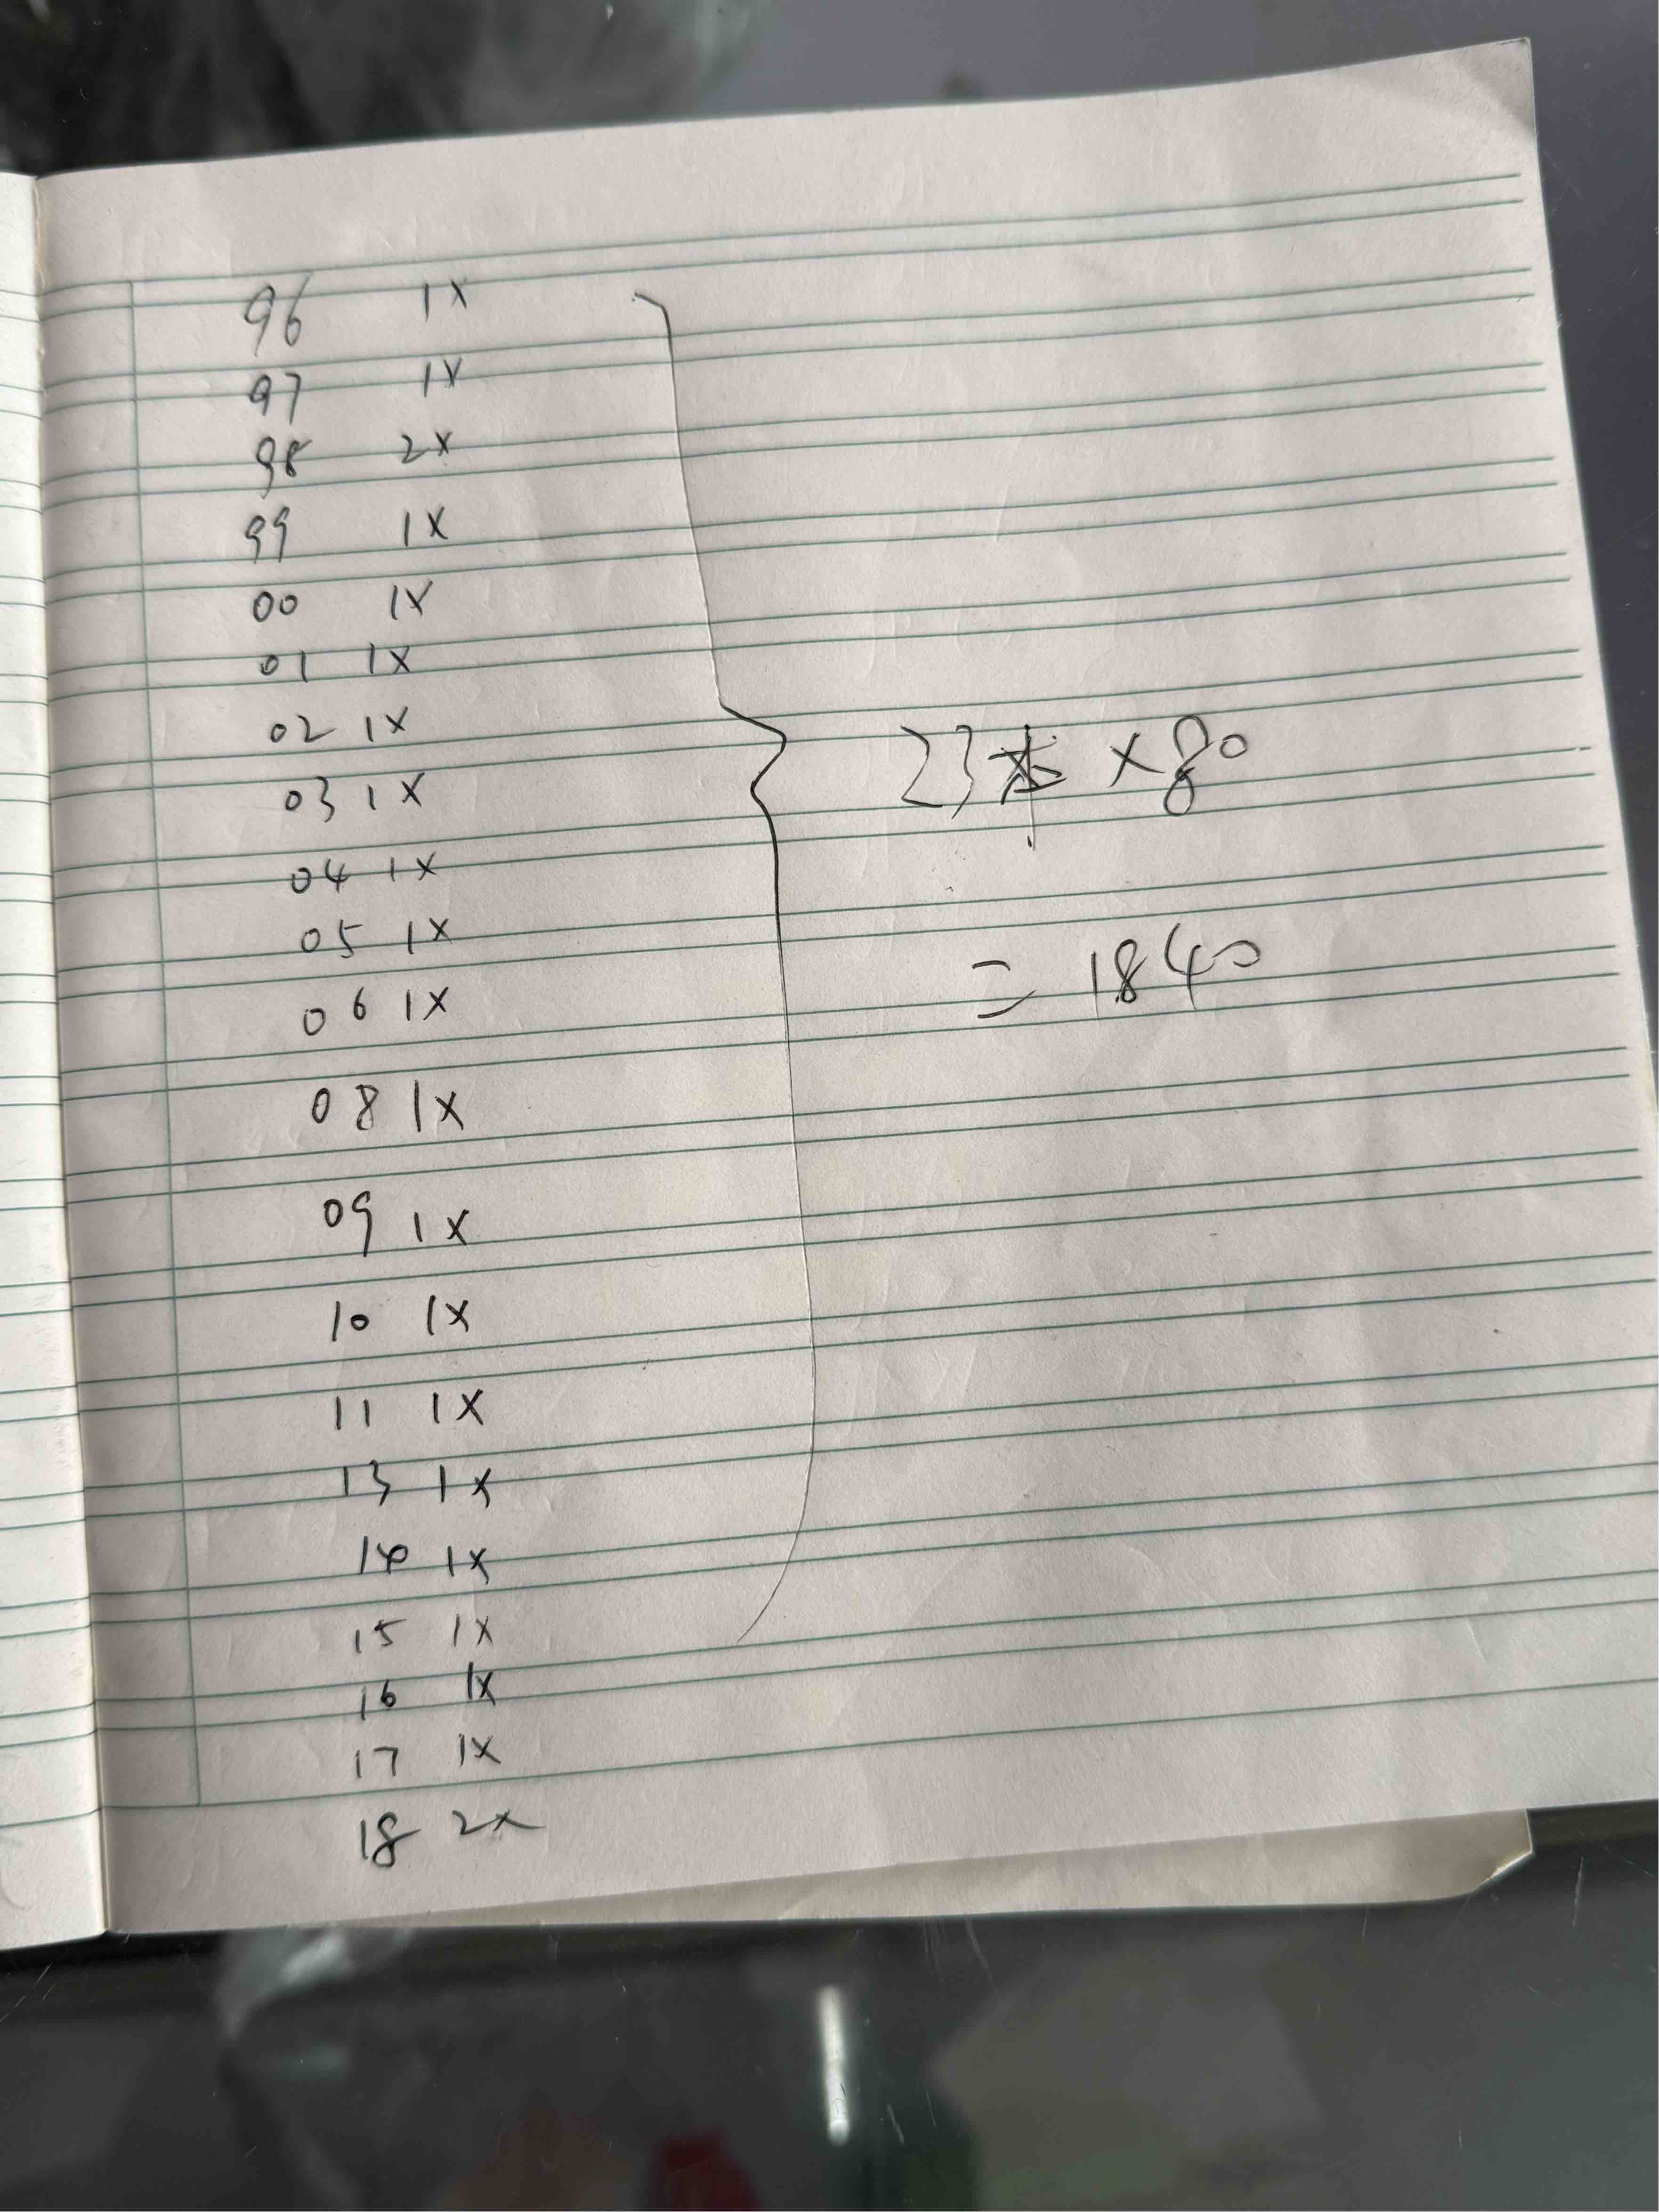 96 1X
97 1X
98 2X
99 1X
00 1X
01 1X
02 1X
03 1X
04 1X
05 1X
06 1X
08 1X
09 1X
10 1X
11 1X
13 1X
14 1X
15 1X
16 1X
17 1X
18 2X
23本 ×80
= 1840